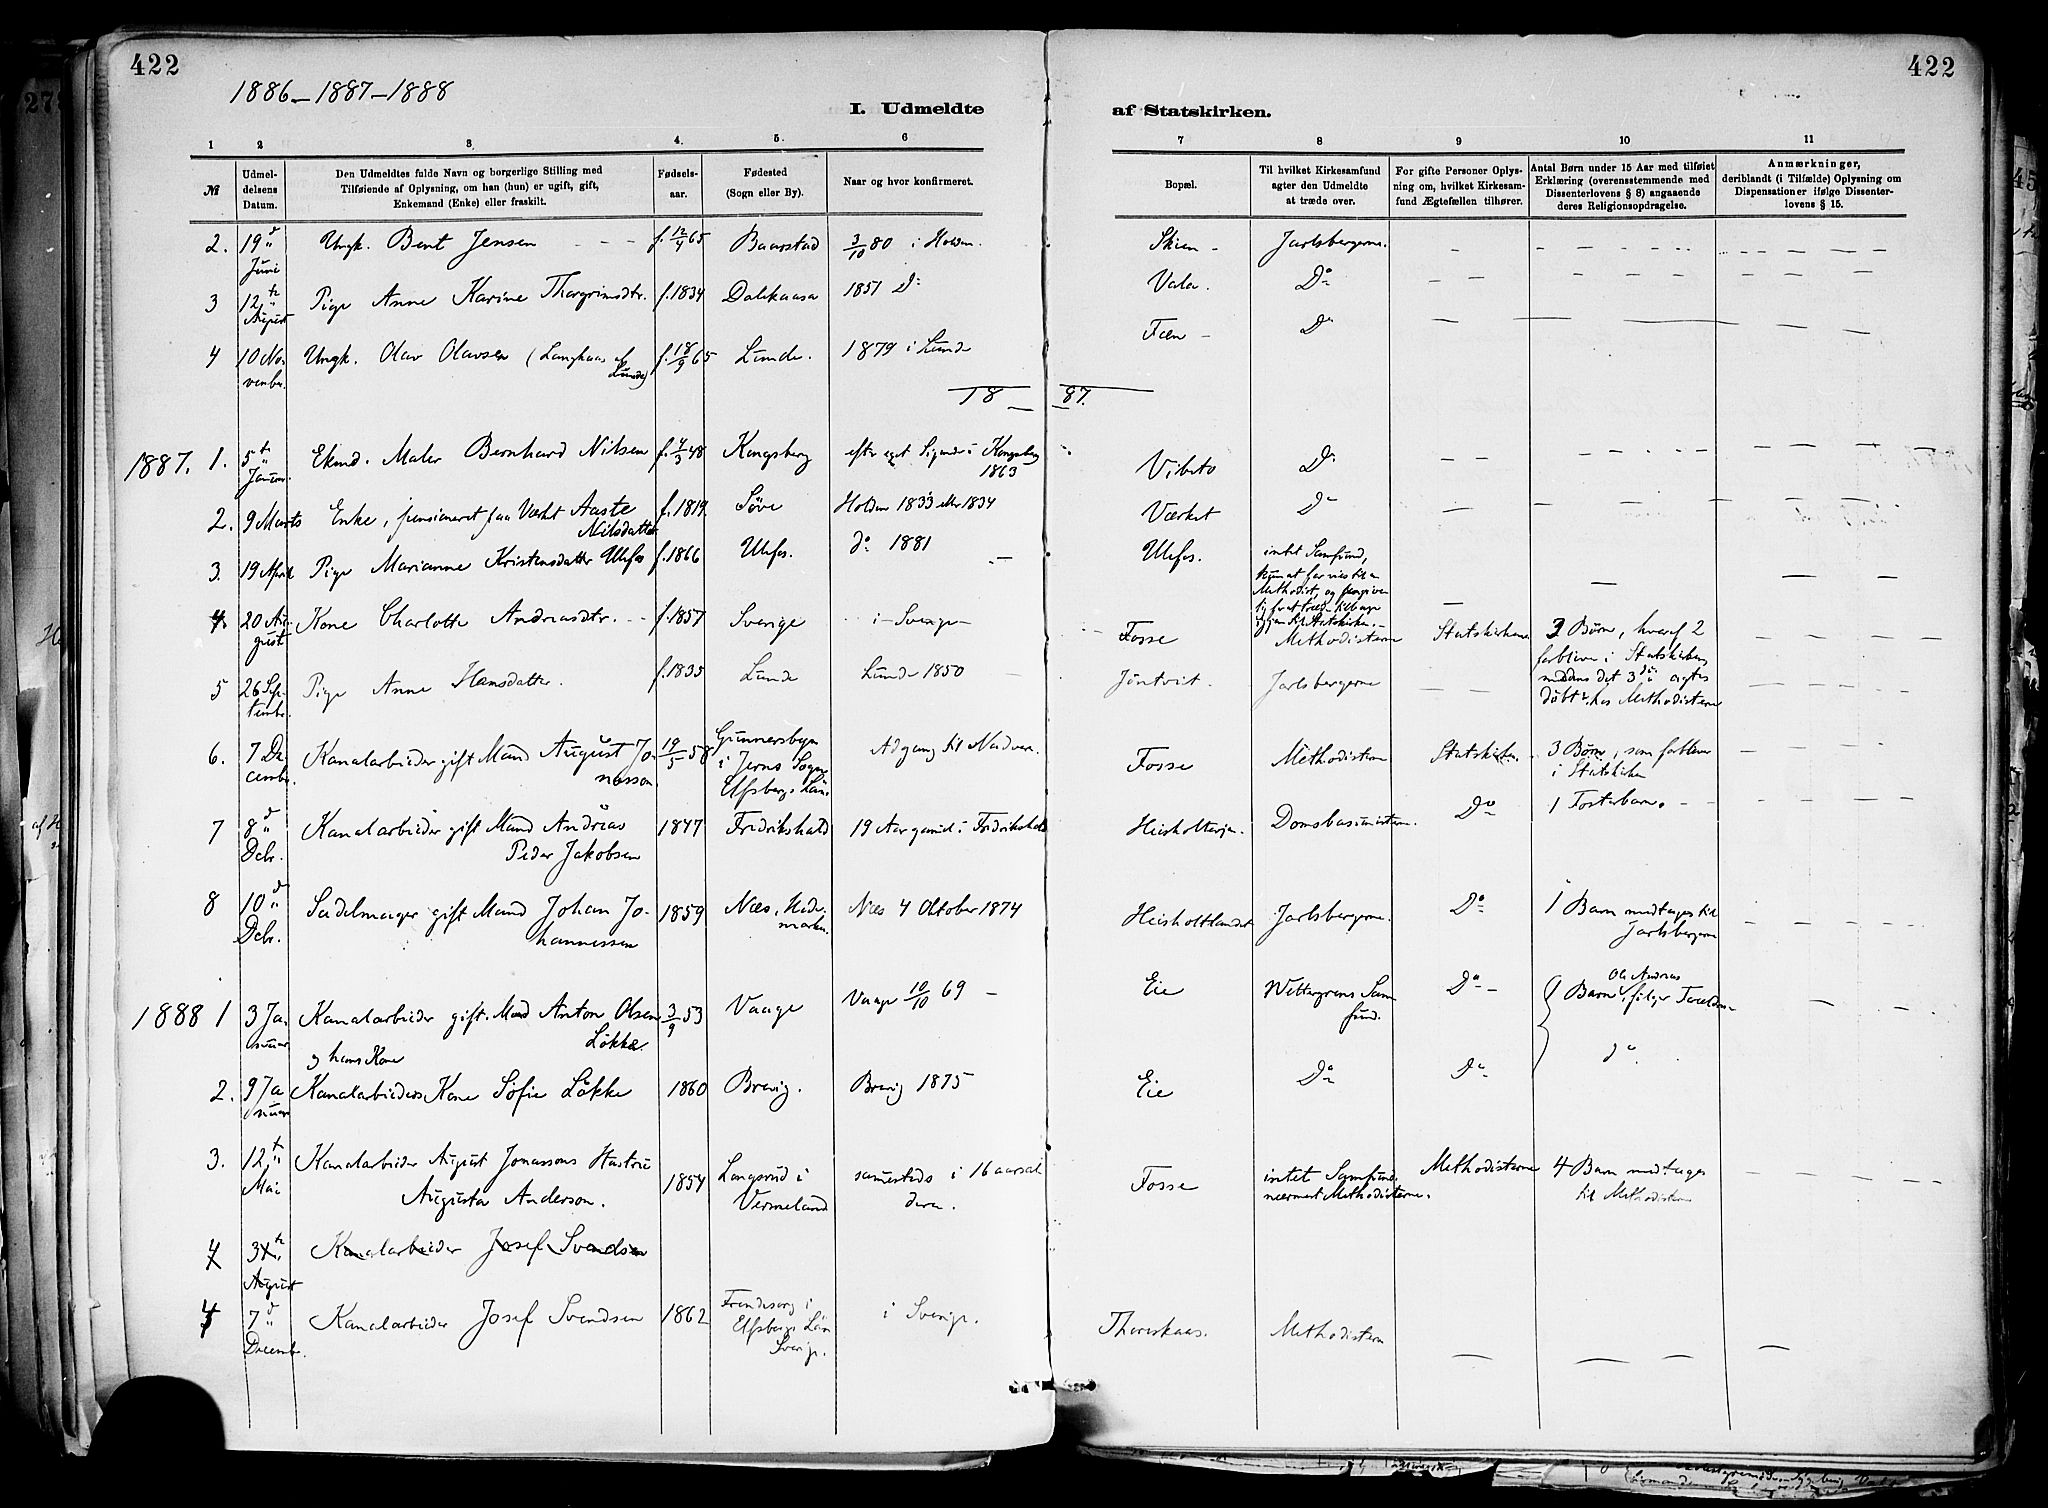 422
422
1886–1887–1888
I. Udmeldte af Statskirken.
1 2 3. 4. 5. 6 7 8 9 10 11
№
Udmeldelsens Datum.
Den Udmeldtes fulde Navn og borgerlige Stilling med
Tilføiende af Oplysning, om han (hun) er ugift, gift,
Enkemand (Enke) eller fraskilt.
Fødselsaar.
Fødested
(Sogn eller By).
Naar og hvor konfirmeret.
Bopæl.
Til hvilket Kirkesamfund
agter den Udmeldte
at træde over.
For gifte Personer Oplysning
om, hvilket Kirkesamfund
Ægtefællen tilhører.
Antal Børn under 15 Aar med tilføiet
Erklæring (overensstemmende med
Dissenterlovens § 8) angaaende
deres Religionsopdragelse.
Anmærkninger,
deriblandt (i Tilfælde) Oplysning om
Dispensationer ifølge Dissenterlovens § 15.
2. 19d Juni Ungk. Bent Jensen - - - f. 12/4 65 Baarstad 3/10 80 i Holden. Skien - Jarlsbergerne.
3 12te August Pige Anne Karine Thorgrimsdtr. f. 1834 Dalskaasa 1851 Do Vala. Do
4 10 November Ungk. Olav Olavsen (Langkaas af Lunde) f. 18/9 65 Lunde. 1879 i Lunde Fæn - Do
18 – 87.
1887. 1. 5te Januar. Ekmd. Maler Bernhard Nilsen f. 4/3 48 Kongsberg efter eget Sigende i Kongsberg 1863 Vibeto Do
2. 9 Marts Enke, pensioneret paa Værket Aaste Nilsdatter f. 1819. Söve Holden 1833 eller 1834 Værket Do
3. 19 April Pige Marianne Kristensdatter Ulefos f. 1866 Ulefos. do 1881 Ulefos. intet Samfund,
kun at for vies til en
Methodist, og
Statskirken.
4. 20 August Kone Charlotte Andreasdtr. - - f. 1857 Sverige - i - Sverige - Fosse Methodisterne Statskirken 3 Børn, hvoraf 2
forblive i Statskirken,
medens det 3die agtes
döbt hos Methodisterne
5 26 September Pige Anne Hansdatter. f. 1835 Lunde Lunde 1850 - Jöntvit. Jarlsbergerne
6. 7 December. Kanalarbeider gift Mand August Jonasson. 19/5 58 Gunnersbyn
i Jerns Sogn
Elfsborgs Län. Adgang til Nadvere. Fosse Methodisterne Statskirk. 3 Børn, som forbliver
i Statskirken
7 8d Decbr. Kanalarbeider gift Mand Andrias Peder Jakobsen 1847 Fridrikshald 19 Aar gammel i Fridrikshald Heisholtterjen. Do 1 Fosterbarn.
8 10d Decbr. Sadelmager gift Mand Johan Johannessen 1859 Næs, Hedemarken. Næs 4 Oktober 1874 Heisholtlandet Jarlsbergerne. Do 1 Barn medtages til
Jarlsbergerne
1888 1 3 Januar Kanalarbeider gift. Mand Anton Olsen Lökke. 3/9 53 Vaage Vaage 10/10 69 - Eie Wettergrens Samfund. Do - 1 Barn, Ole Andreas følger Forældre
og hans Kone
2. 9 Januar Kanalarbeiders Kone Sofie Løkke 1860 Brevig. Brevig 1875 Eie Do Do do
3. 12te Mai Kanalarbeider August Jonassons Hustru
Augusta Anderson. 1854 Langsrud i
Vermeland sammesteds i 16 aarsalderen. Fosse intet Samfund
nærmest Methodisterne. Methodisterne 4 Børn medtages
til Methodisterne
4 31te August Kanalarbeider Josef Svendsen
4 7d Decemb. Kanalarbeider Josef Svendsen 1862
Elfsborgs Län
Sverige. i Sverige. Thoreskaas. Methodistern